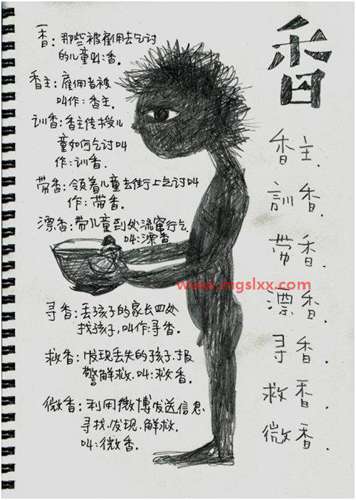 香：那些被雇用去乞讨
的儿童叫：香.
香主：雇佣者被
叫作：香主.
训香：香主传授儿
童如何乞讨叫
作：训香.
带香：领着儿童去街上乞讨叫
作：带香.
漂香：带儿童到处流窜行乞
叫：漂香
寻香：丢孩子的家长四处
找孩子，叫作寻香.
救香：发现丢失的孩子，报
警解救，叫：救香.
微香：利用微博发送信息
寻找、发现、解救.
叫：微香.
香
香主.
訓香.
带香.
漂香.
寻香.
救香.
微香.
www.mgslxx.com